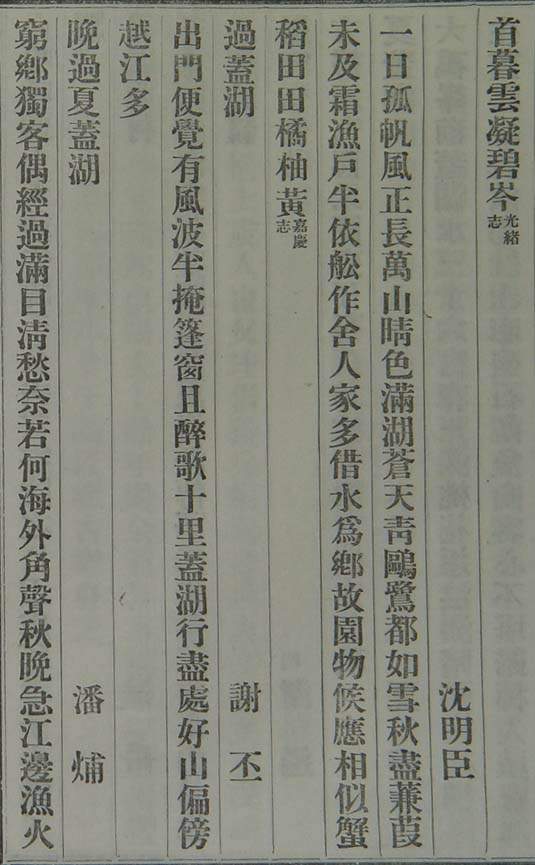 首暮雲凝碧岑光緒志
沈明臣
一日孤帆風正長萬山晴色滿湖蒼天青鷗鷺都如雪秋盡蒹葭
未及霜漁戶半依舩作舍人家多借水爲鄉故園物候應相似蟹
稻田田橘柚黃嘉慶志
過蓋湖 謝丕
出門便覺有風波半掩篷窗且醉歌十里蓋湖行盡處好山偏傍
越江多
晚過夏蓋湖 潘煏
窮鄉獨客偶經過滿目淸愁奈若何海外角聲秋晚急江邊漁火